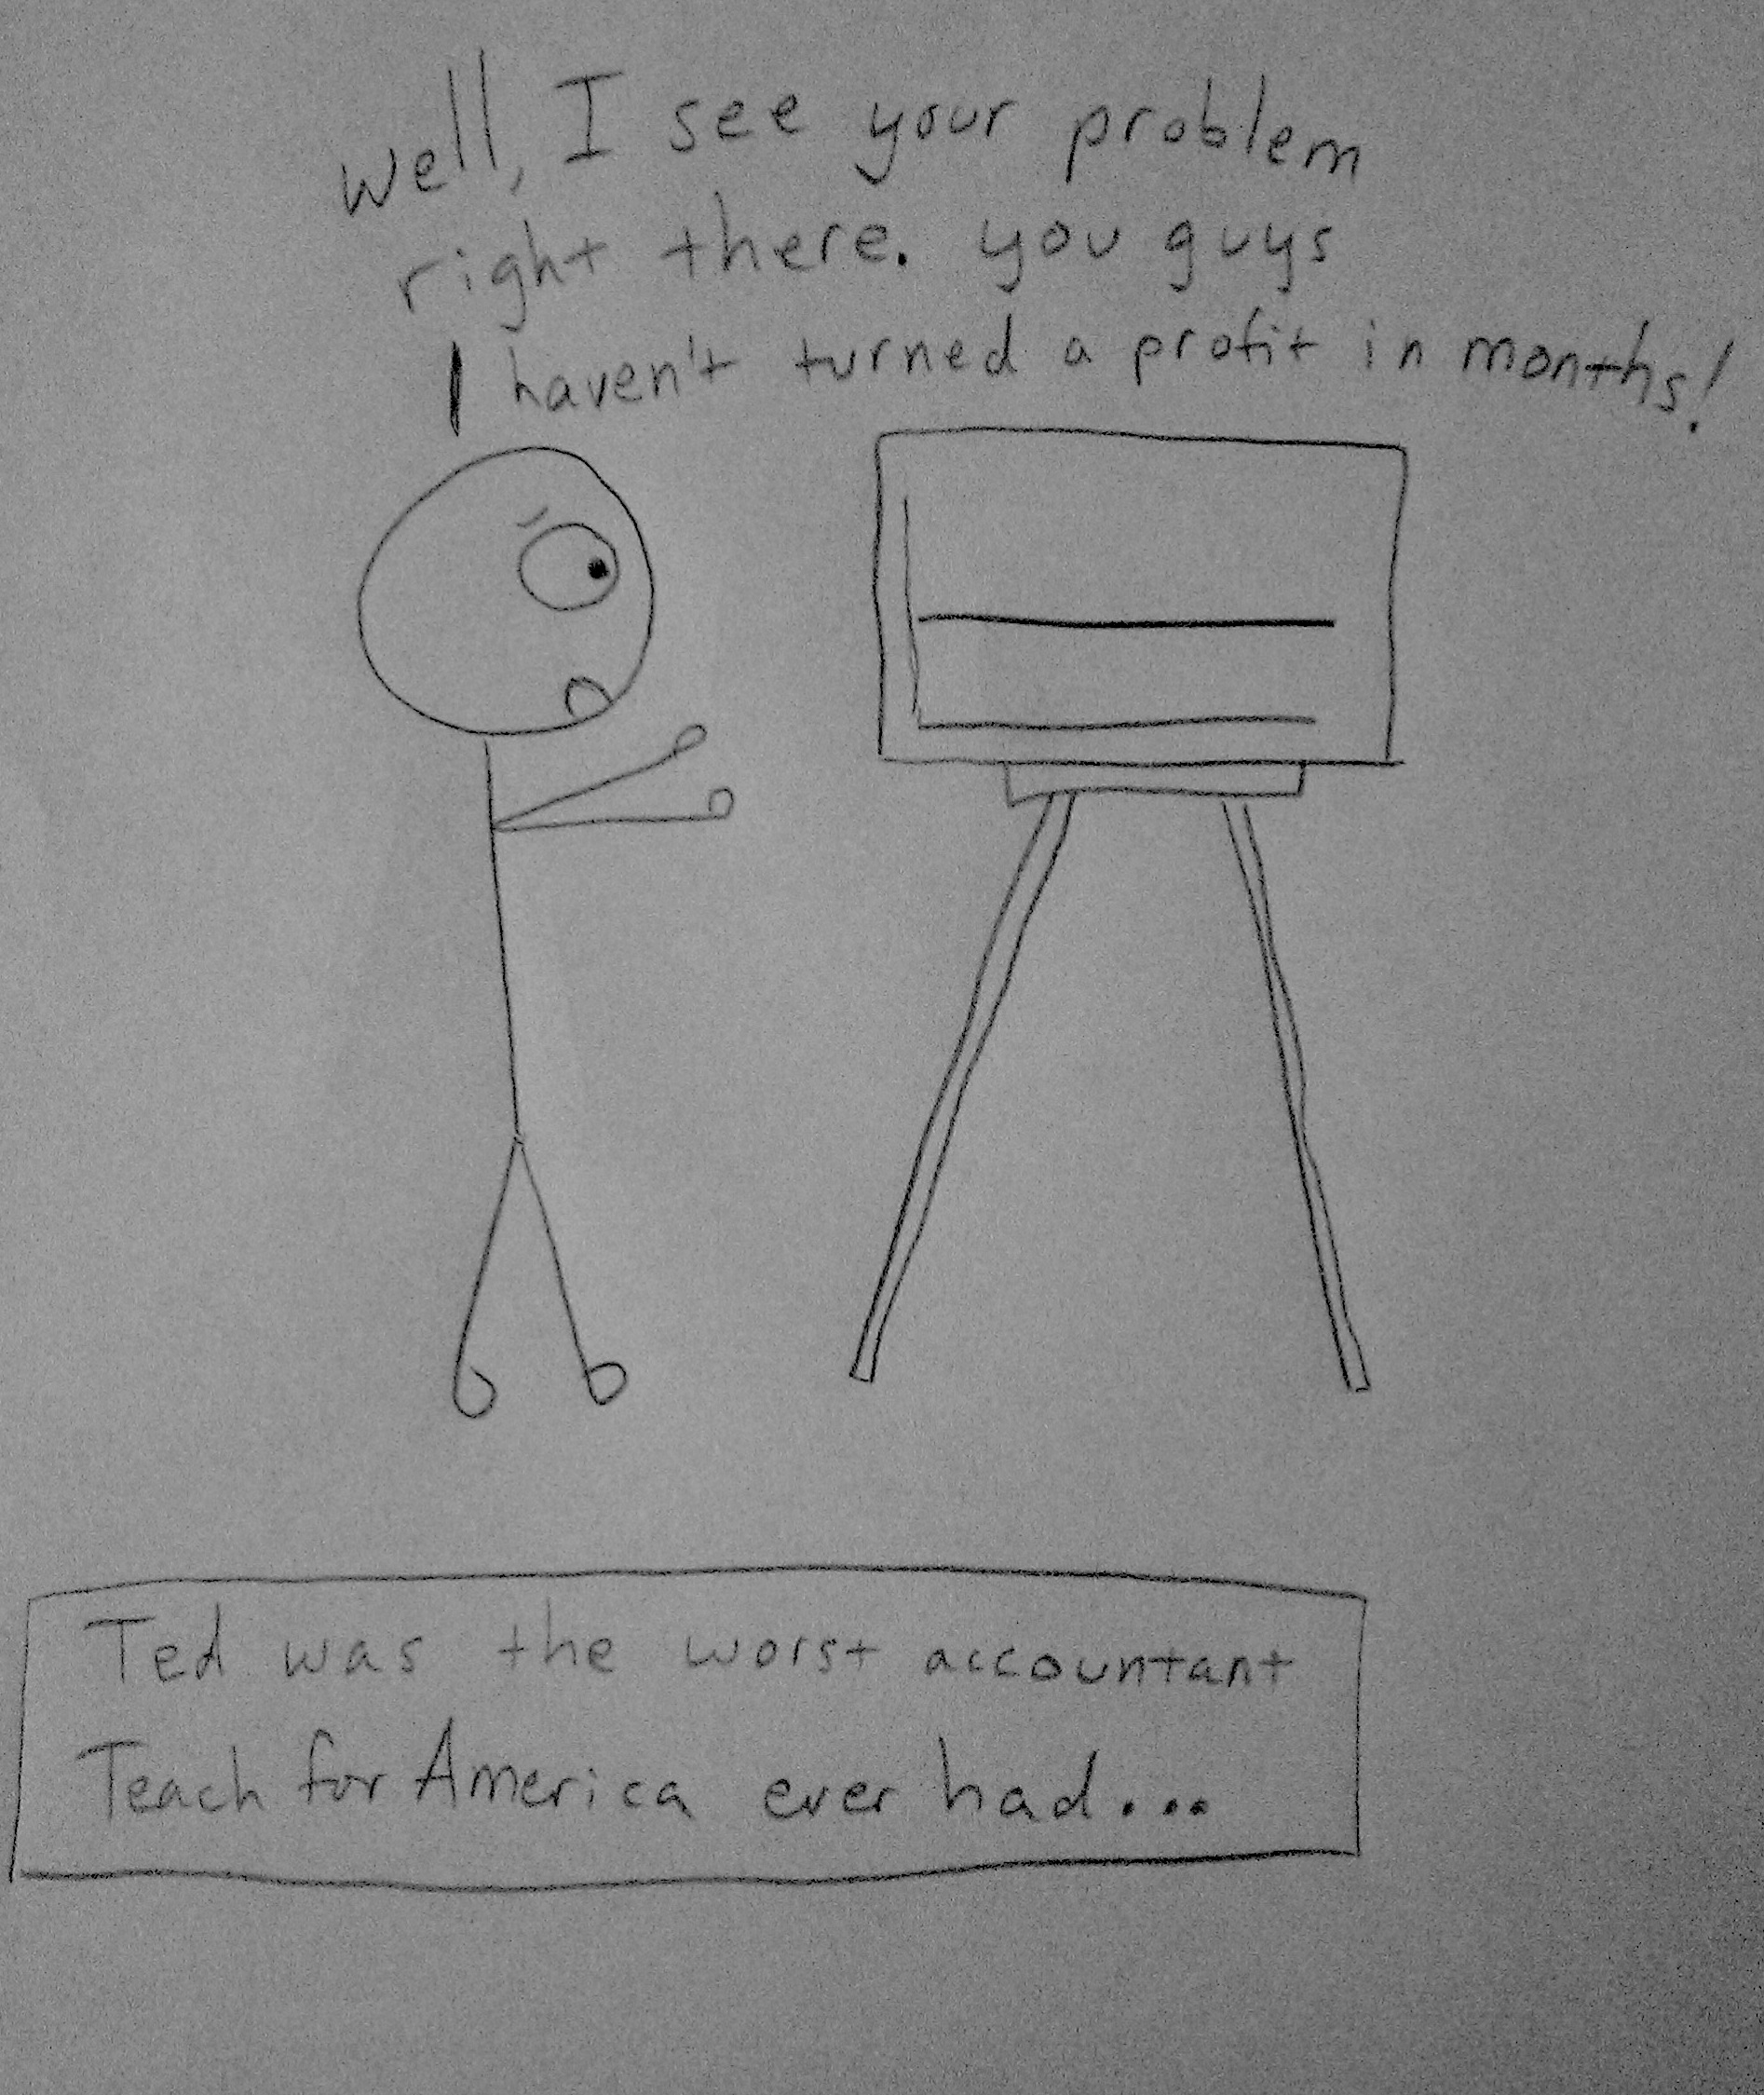 Well, I see your problem
right there. you guys
haven't turned a profit in months!
Ted was the worst accountant
Teach for America ever had...